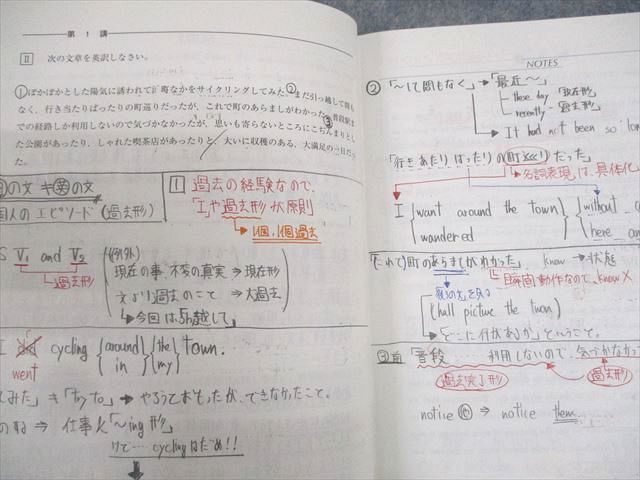 第 1 講
II 次の文章を英訳しなさい。
①ぽかぽかとした陽気に誘われて町なかをサイクリングしてみた。②まだ引っ越して間も
なく、行き当たりばったりの町巡りだったが、これで町のあらましがわかった。③普段駅ま
での経路しか利用しないので気づかなかったが、思いも寄らないところにこぢんまりとし
た公園があったり、しゃれた喫茶店があったりと、大いに収穫のある、大満足の一日だっ
の文 キ の文
人のエピソード (過去形)
1 過去の経験なので、
「I」や過去形が原則
↳ 1個、1個過去
S V1 and V2
↳過去形
(例外)
現在の事・不変の真実 ⇒ 現在形
文より過去のこと ⇒ 大過去
↳今回は「引越して」
I did cycling {around in} {the my} town.
went
てみた」キ「to」→ やろうとおもったが、できなかったこと。
⇒ 仕事人「~ing形」
けど… cyclingはだめ!!
NOTES
② 「〜して間もなく」→「最近〜」
these day 現在形
recently 過去形
↳ It had not been so lon
「行きあたりばったりの町めぐりだった」
↳名詞表現は、具体化
I {want around the town
wandered} {without a
here an
「(これで)町のあらましがわかった」 know → 状態
↳瞬間動作なので、know ✕
(hall picture the town)
↳「どこに何があるか」ということ。
③前 「普段 … 利用しないので、気づかなかっ
過去完了形 過去形
notice ⇒ notice them